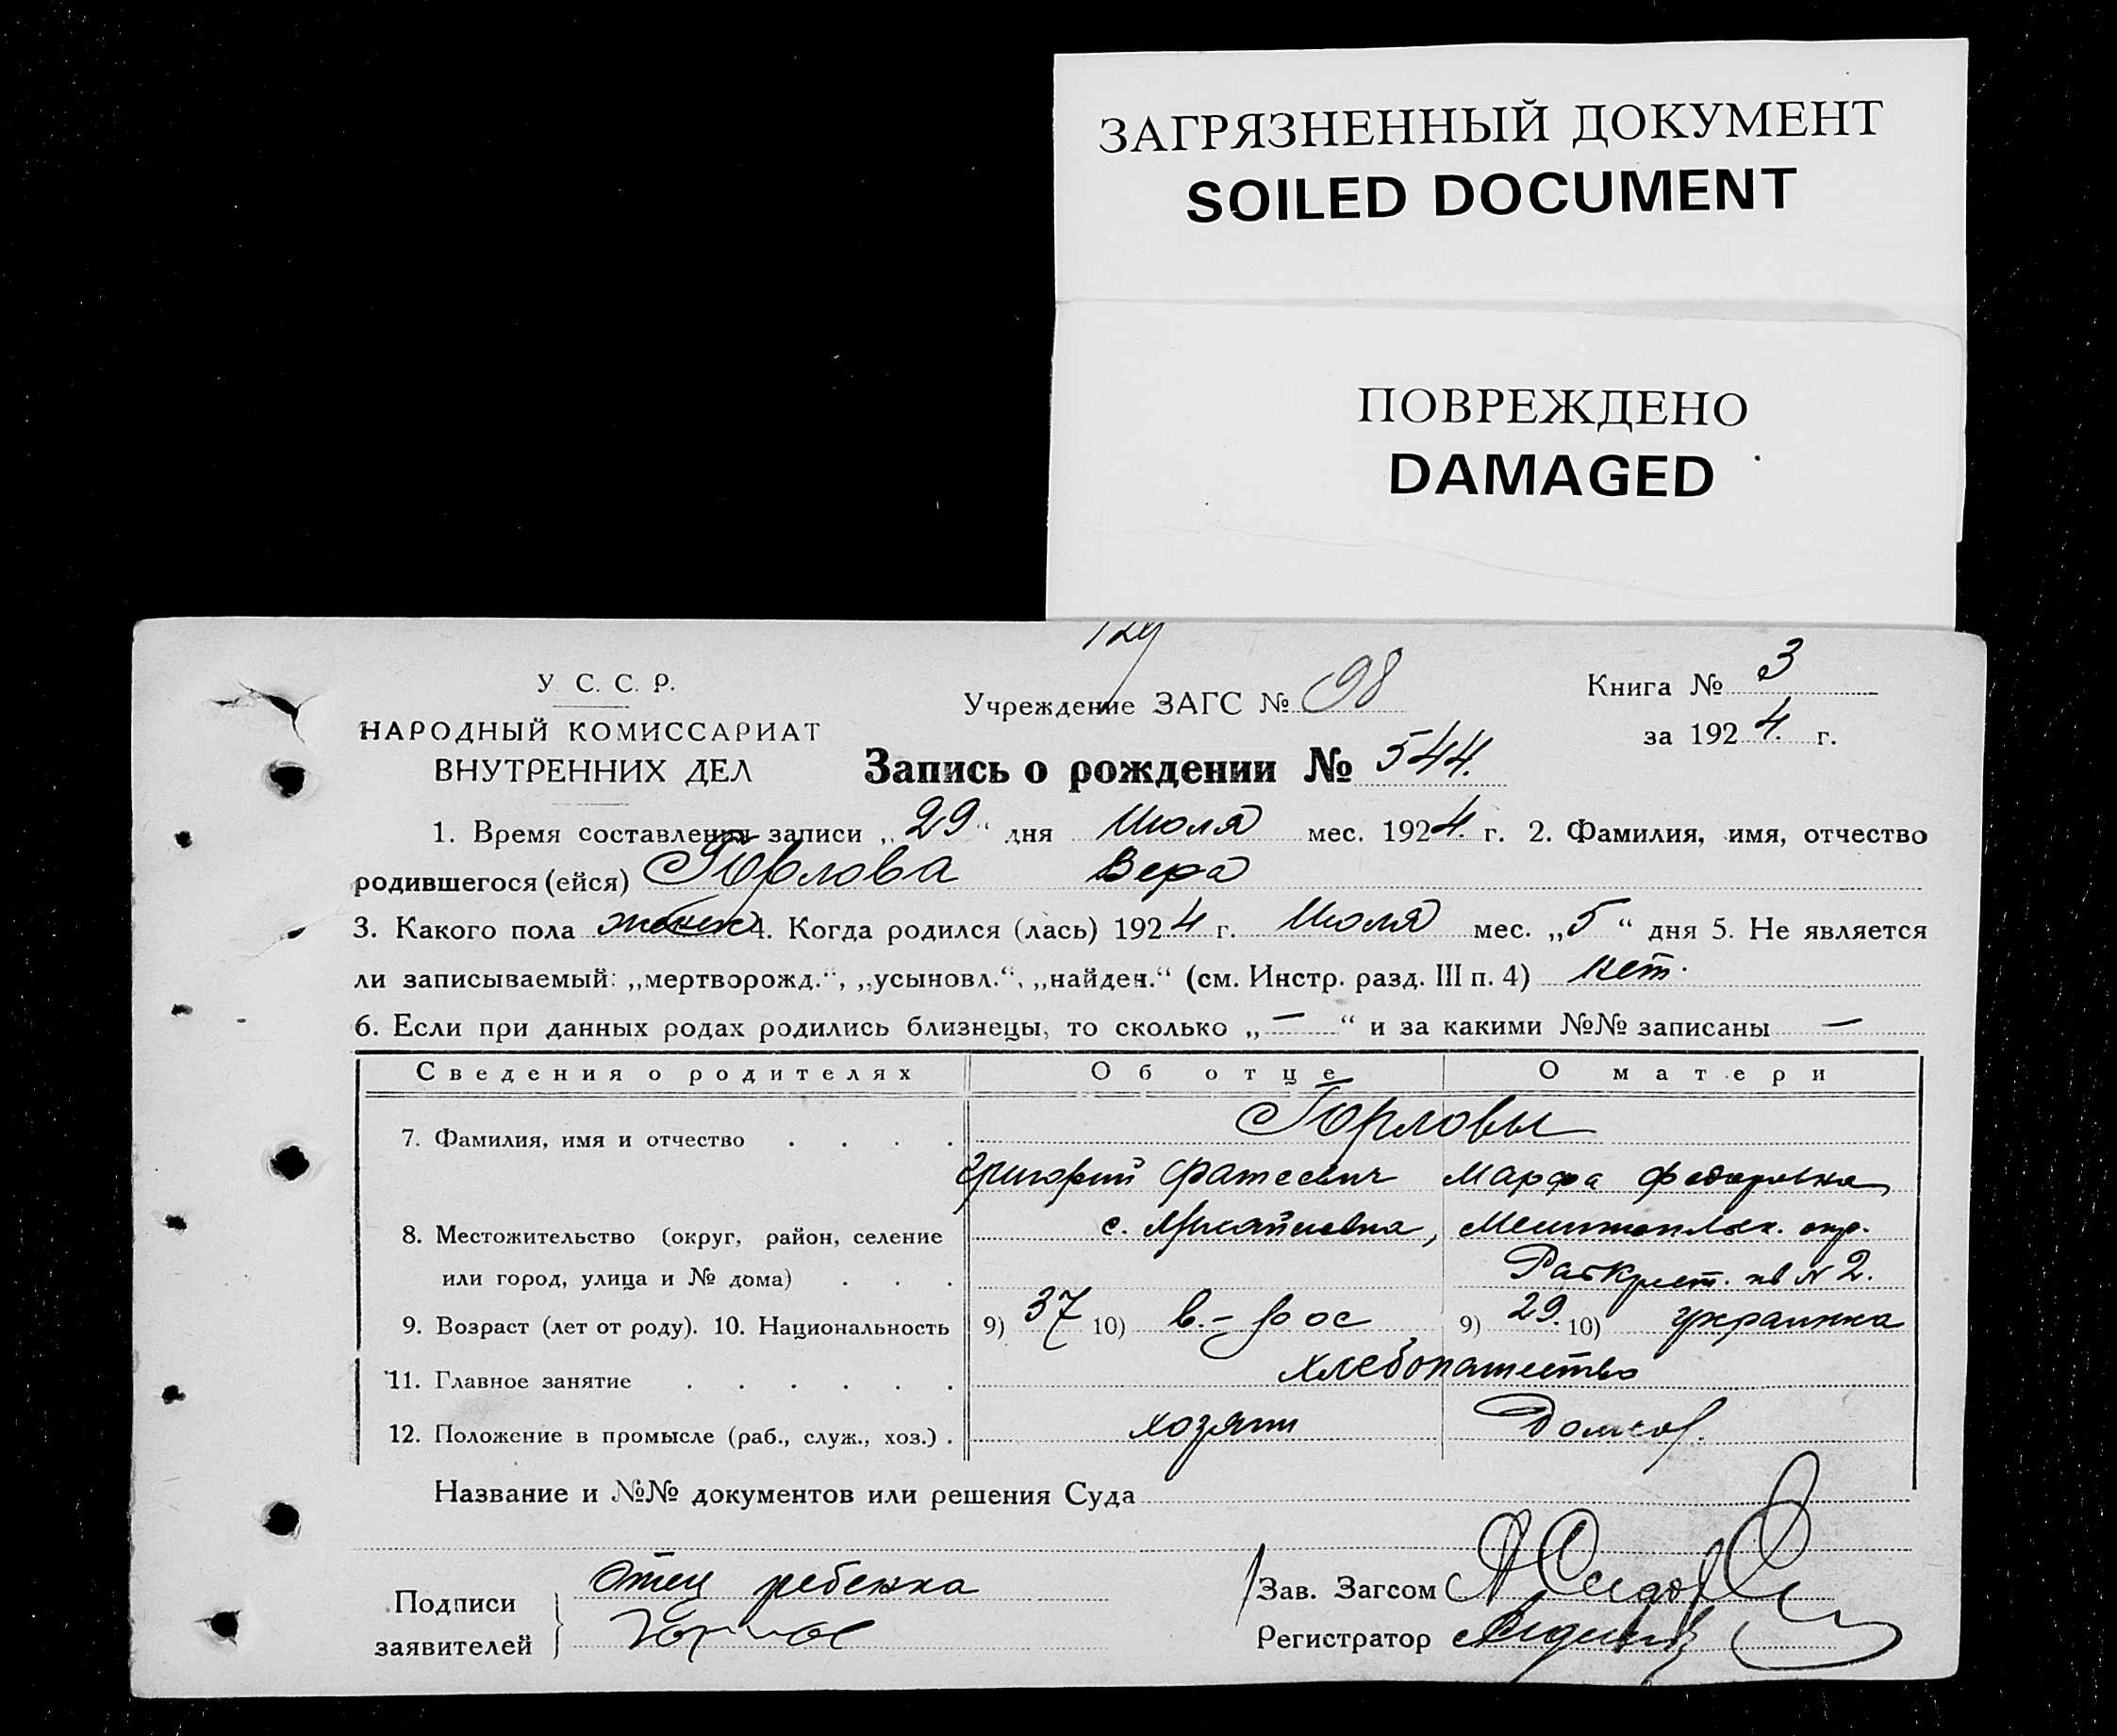 ЗАГРЯЗНЕННЫЙ ДОКУМЕНТ
SOILED DOCUMENT
ПОВРЕЖДЕНО
DAMAGED
У. С. С. Р.
НАРОДНЫЙ КОМИССАРИАТ
ВНУТРЕННИХ ДЕЛ
Учреждение ЗАГС № 98
Книга № 3
за 1924. г.
Запись о рождении № 544.
1. Время составления записи „29“ дня Июля мес. 1924. г. 2. Фамилия, имя, отчество
родившегося (ейся) Горлова Вера
3. Какого пола женск 4. Когда родился (лась) 1924 г. Июля мес. „5“ дня 5. Не является
ли записываемый: „мертворожд.“, „усыновл.“, „найден.“ (см. Инстр. разд. III п. 4) нет.
6. Если при данных родах родились близнецы, то сколько „—“ и за какими №№ записаны —
Сведения о родителях Об отце О матери
7. Фамилия, имя и отчество . . . . Горловы
Григорий Фатеевич Марфа Федоровна
8. Местожительство (округ, район, селение с. , окр.
или город, улица и № дома) . . . № 2.
9. Возраст (лет от роду). 10. Национальность 9) 37 10) в.-рос 9) 29. 10) украинка
11. Главное занятие . . . . . . хлебопашество
12. Положение в промысле (раб., служ., хоз.) . хозяин Домхоз.
Название и №№ документов или решения Суда
Подписи заявителей Отец ребенка
Зав. Загсом
Регистратор